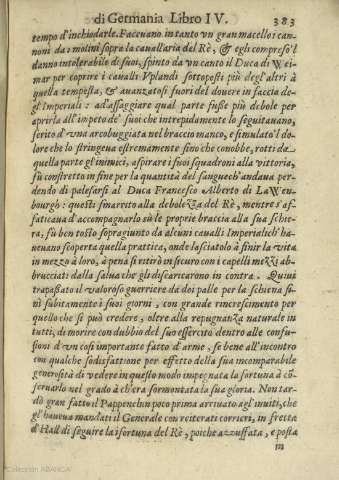 di Germania Libro IV. 383
tempo d'inchiodarle. Faceuano in tanto vn gran macello i can-
noni da i molini sopra la cauallaria del Rè, & egli compreso'l
danno intolerabile de' suoi, spinto da vn canto il Duca di Wei-
mar per coprire i caualli Vplandi sottoposti più degl'altri à
quella tempesta, & auanzatosi fuori del douere in faccia de
gl'Imperiali : ad'assaggiare qual parte fusse più debole per
aprirla all'impeto de' suoi che intrepidamente lo seguitauano,
ferito d'vna arcobuggiata nel braccio manco, e stimulato'l do-
lore che lo stringeua estremamente sino che conobbe, rotti da
quella parte gl'inimici, aspirare i suoi squadroni alla vittoria,
fù constretto in fine per la quantità del sangue ch'andaua per-
dendo di palesarsi al Duca Francesco Alberto di LaWen-
bourgh : questi smarrito alla debolezza del Rè, mentre s'af-
faticaua d'accompagnarlo sù le proprie braccia alla sua schie-
ra, fù ben tosto sopragiunto da alcuni caualli Imperiali ch'ha-
neuano scoperta quella prattica, onde lasciatolo à finir la vita
in mezzo à loro, à pena si ritirò in sicuro con i capelli mezzi ab-
brucciati dalla salua che gli discaricarono in contra. Quiui
trapassato il valoroso guerriere da doi palle per la schiena fi-
nì subitamente i suoi giorni, con grande rincrescimento per
quello che si può credere, oltre alla repugnanza naturale in
tutti, di morire con dubbio del suo essercito dentro alle confu-
sioni d'vn così importante fatto d'arme, se bene all'incontro
con qualche sodisfattione per effetto della sua incomparabile
generosità di vedere in questo modo impegnata la fortuna à cō-
seruarlo nel grado à ch'era sormontata la sua gloria. Non tar-
dò gran fatto il Pappenehin poco prima arriuato agl'inuiti, che
gl'haueua mandati il Generale con reiterati corrieri, in fretta
d'Hall di seguire la i fortuna del Rè, poiche azzuffata, e posta
in
Colección ABANCA